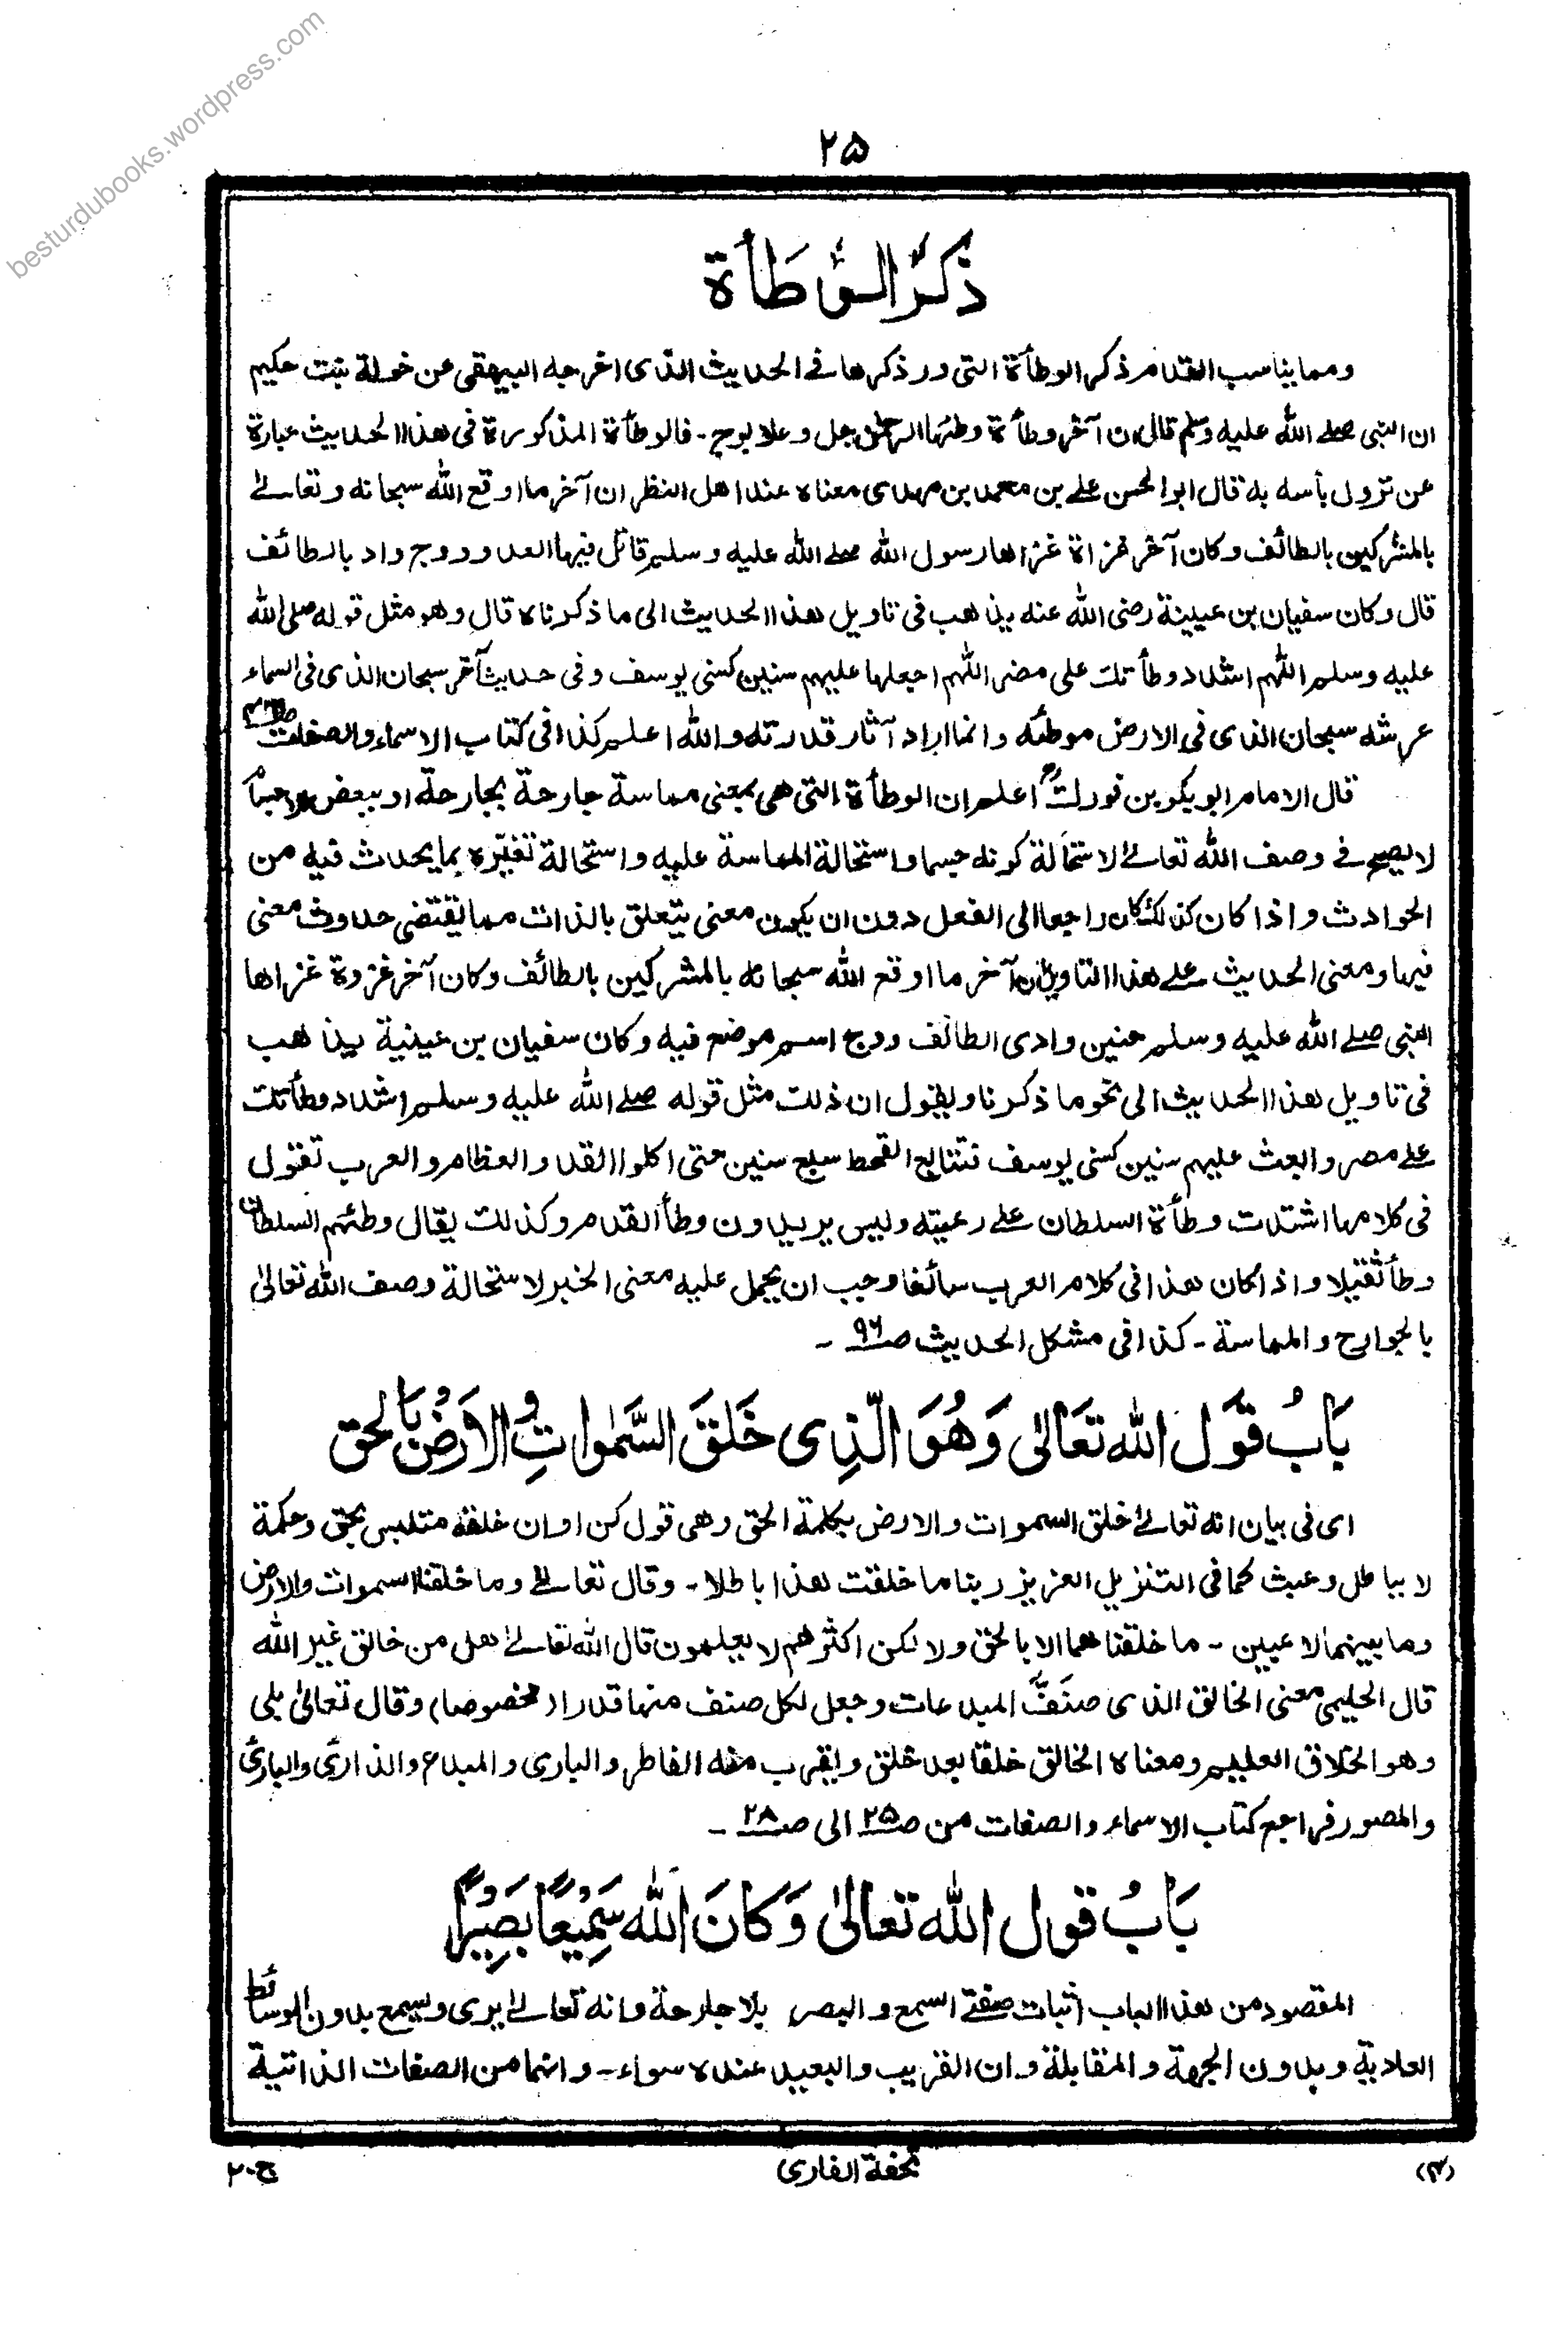 besturdubooks.wordpress.com
۲۵
ذکر الوطأة
ومما يناسب القدم ذكر الوطأة التى ورد ذكرها فى الحديث الذى اخرجه البيهقى عن خولة بنت حكيم
ان النبى صلى الله عليه وسلم قال ان آخر وطأة وطئها الرحمٰن جل وعلا بوج ـ فالوطأة المذكورة فى هذا الحديث عبارة
عن نزول بأسه به قال ابوالحسن على بن محمد بن مهدى معناه عند اهل النظر ان آخر ما اوقع الله سبحانه وتعالى
بالمشركين بالطائف وكان آخر غزاة غزاها رسول الله صلى الله عليه وسلم قاتل فيها العدو ووج واد بالطائف
قال وكان سفيان بن عيينة رضى الله عنه يذهب فى تاويل هذا الحديث الى ما ذكرناه قال وهو مثل قوله صلى الله
عليه وسلم اللهم اشدد وطأتك على مضر اللهم اجعلها عليهم سنين كسنى يوسف وفى حديث آخر سبحان الذى فى السماء
عرشه سبحان الذى فى الارض موطئه وانما اراد آثار قدرته والله اعلم كذا فى كتاب الاسماء والصفات
قال الامام ابو بكر بن فورك اعلم ان الوطأة التى هى بمعنى مماسة جارحة بجارحة او ببعض الاجسام
لا يصح فى وصف الله تعالى لاستحالة كونه جسما واستحالة المماسة عليه واستحالة تغيّره بما يحدث فيه من
الحوادث واذا كان كذلك كان راجعا الى الفعل دون ان يكون معنى يتعلق بالذات مما يقتضى حدوث معنى
فيها ومعنى الحديث على هذا التاويل ان آخر ما اوقع الله سبحانه بالمشركين بالطائف وكان آخر غزوة غزاها
النبى صلى الله عليه وسلم حنين وادى الطائف ووج اسم موضع فيه وكان سفيان بن عيينة يذهب
فى تاويل هذا الحديث الى نحو ما ذكرنا ويقول ان ذلك مثل قوله صلى الله عليه وسلم اشدد وطأتك
على مصر وابعث عليهم سنين كسنى يوسف فتتابع القحط سبع سنين حتى اكلوا القد والعظام والعرب تقول
فى كلامها اشتدت وطأة السلطان على رعيته وليس يريدون وطأ القدم وكذلك يقال وطئهم السلطان
وطأ ثقيلا واذا كان هذا فى كلام العرب سائغا وجب ان يحمل عليه معنى الخبر لاستحالة وصف الله تعالىٰ
بالجوارح والمماسة ـ كذا فى مشكل الحديث صـ۹۶ ـ
بَابُ قَوْل الله تَعَالىٰ وَهُوَ الَّذِى خَلَقَ السَّمٰوَاتِ وَالْاَرْضَ بِالْحق
اى فى بيان انه تعالى خلق السموات والارض بكلمة الحق وهى قول كن او ان خلقه متلبس بحق وحكمة
لا بباطل وعبث كما فى التنزيل العزيز ربنا ما خلقت هذا باطلا ـ وقال تعالى وما خلقنا السموات والارض
وما بينهما لاعبين ـ ما خلقناهما الا بالحق ولا لكن اكثرهم لا يعلمون قال الله تعالى هل من خالق غير الله
قال الحليمى معنى الخالق الذى صنَّفَ المبدعات وجعل لكل صنف منها قدرا (مخصوصا) وقال تعالىٰ بلى
وهو الخلاق العليم ومعناه الخالق خلقا بعد خلق ويقرب منه الفاطر والبارى والمبدع والذارئ والبارئ
والمصور فراجع كتاب الاسماء والصفات من صـ۲۵ الى صـ۲۸ ـ
بَابُ قول الله تعالىٰ وَكَانَ الله سَمِيْعًا بَصِيْرًا
المقصود من هذا الباب اثبات صفتى السمع والبصر بلا جارحة وانه تعالى يرى ويسمع بدون الوسائط
العادية وبدون الجهة والمقابلة وان القريب والبعيد عنده سواء ـ وانهما من الصفات الذاتية
(۴)
تحفة القارى
ج۔۲۰